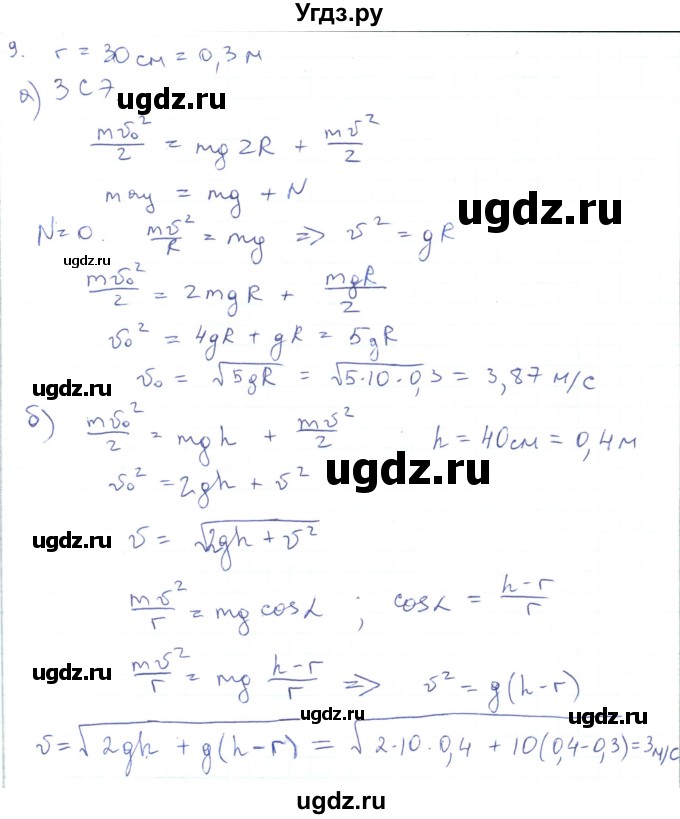 Угдз.ру
9. r = 30 см = 0,3 м
а) ЗСЭ
ugdz.ru
mv₀²/2 = mg2R + mv²/2
ugdz.ru
may = mg + N
N=0. mv²/R = mg => v² = gR
ugdz.ru
mv₀²/2 = 2mgR + mgR/2
v₀² = 4gR + gR = 5gR
ugdz.ru
v₀ = √5gR = √5·10·0,3 = 3,87 м/с
ugdz.ru
б) mv₀²/2 = mgh + mv²/2 h = 40см = 0,4м
ugdz.ru
v₀² = 2gh + v²
ugdz.ru
v = √2gh + v²
mv²/r = mg cosα ; cosα = h-r/r
ugdz.ru
ugdz.ru
mv²/r = mg h-r/r => v² = g(h-r)
ugdz.ru
ugdz.ru
v = √2gh + g(h-r) = √2·10·0,4 + 10(0,4-0,3) = 3м/с
ugdz.ru